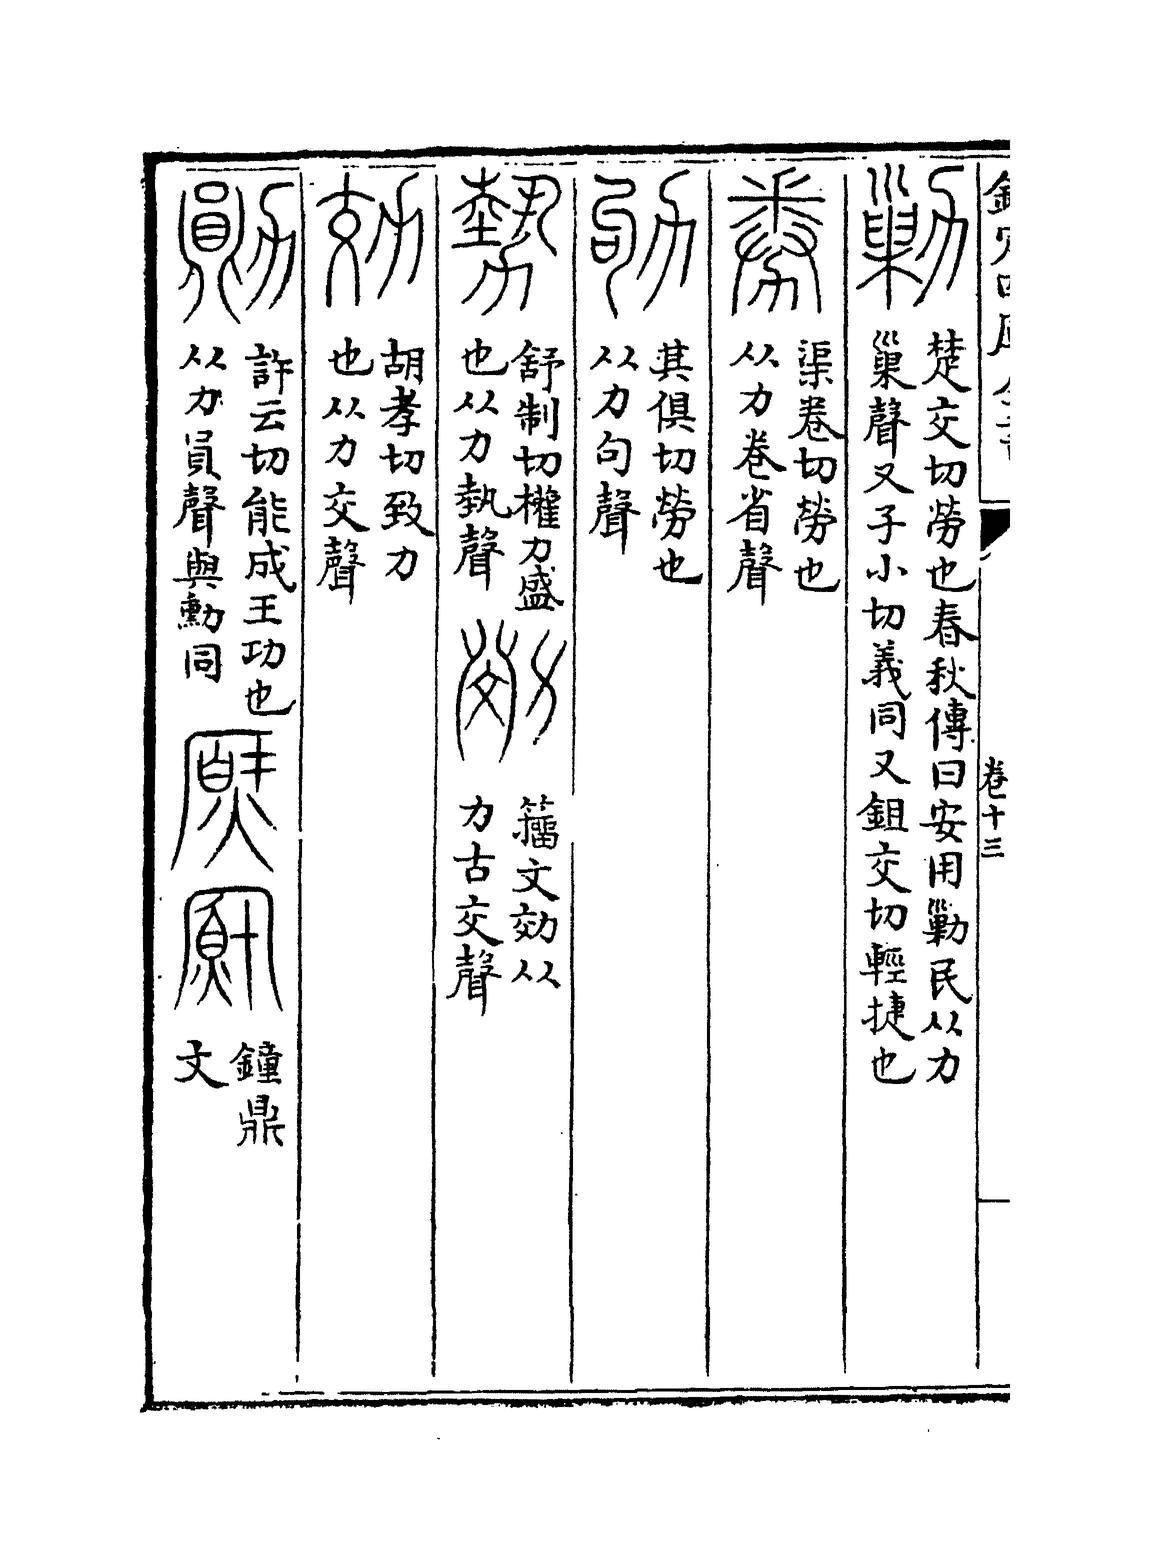 欽定四庫全書
卷十三
勦
楚交切勞也春秋傳曰安用勦民从力
巢聲又子小切義同又鉏交切輕捷也
劵
渠卷切勞也
从力卷省聲
劬
其俱切勞也
从力句聲
勢
舒制切權力盛
也从力埶聲
籀文効从
力古交聲
効
胡孝切致力
也从力交聲
勛
許云切能成王功也
从力員聲與勳同
鐘鼎
文